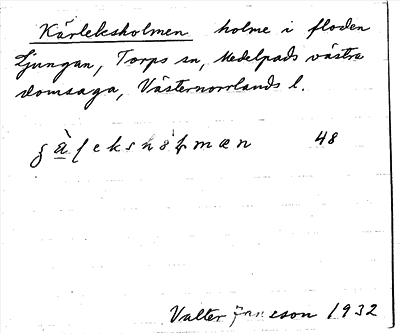 Kärleksholmen holme i floden
Ljungan, Torps sn, Medelpads västra
domsaga, Västernorrlands l.
48
Valter Jansson 1932